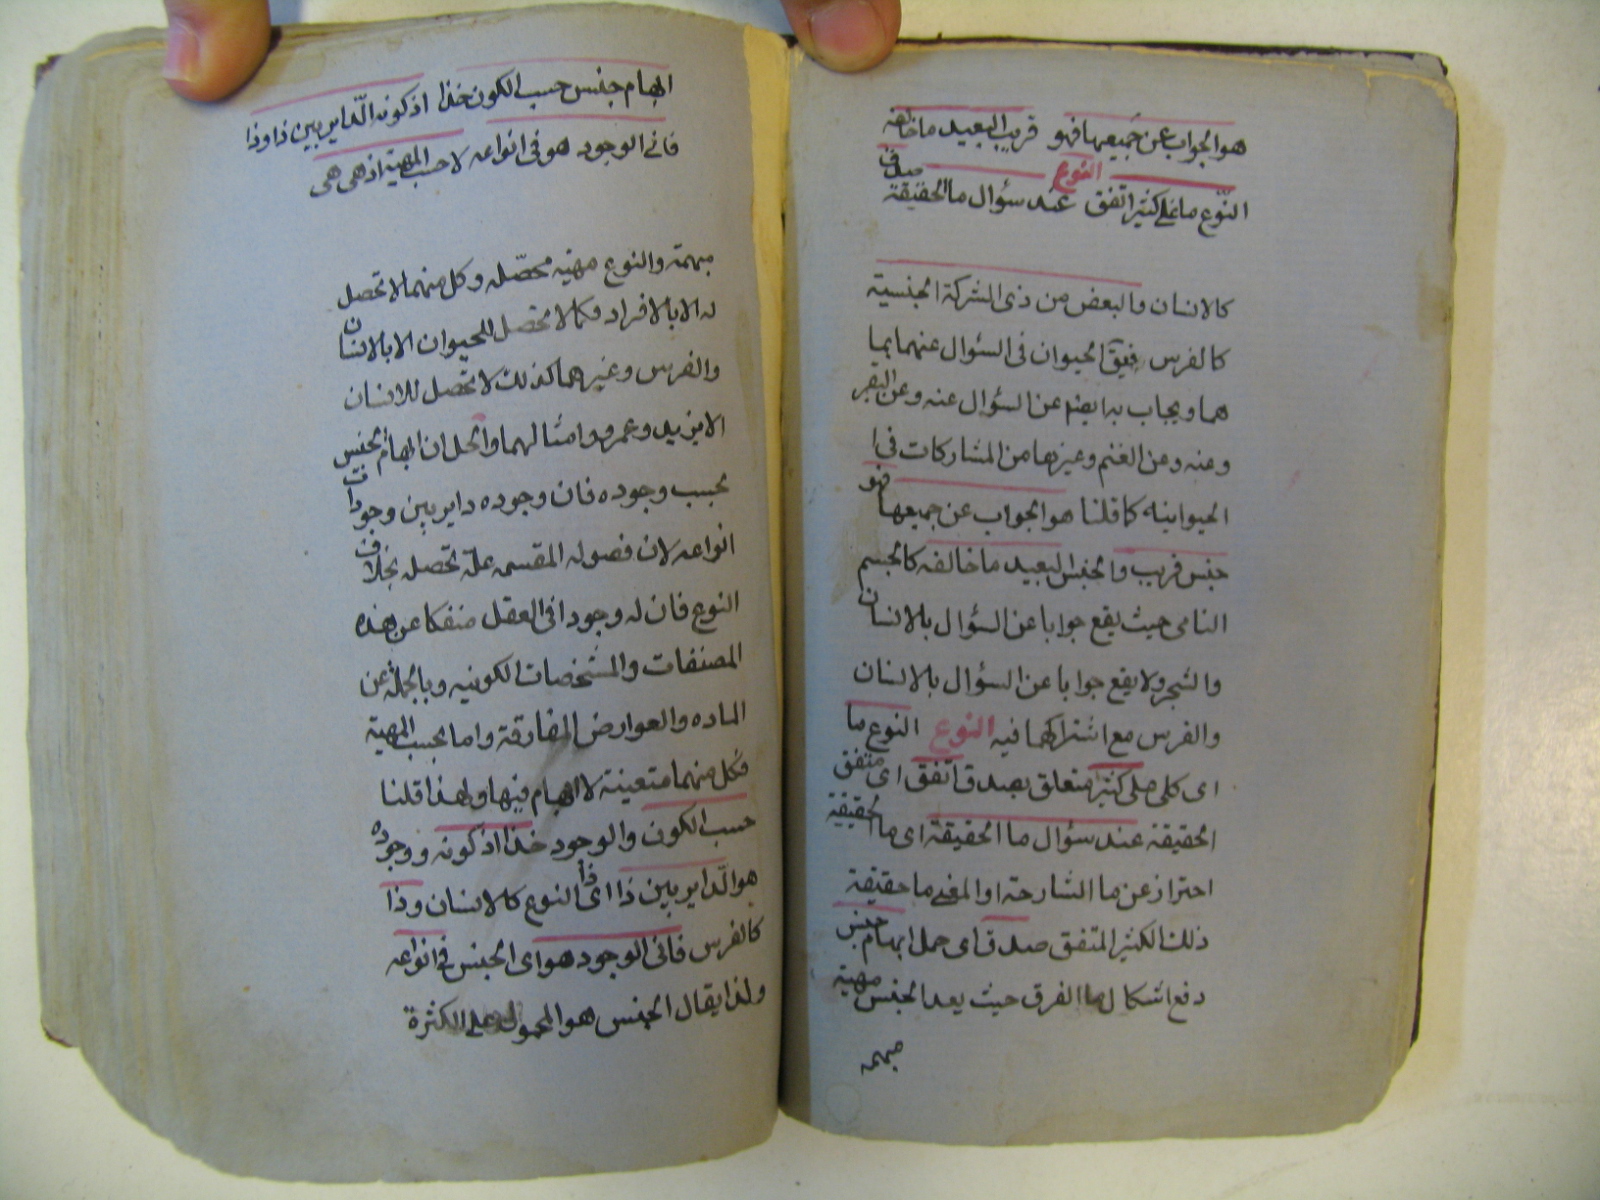 هو الجواب عن جميعها فهو قريب البعيد ما خالفه
النوع
النوع ما على كثير اتفق صدق عند سؤال ما الحقيقة
كالانسان والبعض من ذى الشركة الجنسية
كالفرس فيق الحيوان فى السؤال عنهما بما
هما ويجاب به ايضا عن السؤال عنه وعن البقر
وعنه وعن الغنم وغيرها من المشاركات فى
الحيوانيه كما قلنا هو الجواب عن جميعها فهو
جنس قريب والجنس البعيد ما خالفه كالجسم
النامى حيث يقع جوابا عن السؤال بالانسان
والشجر ولا يقع جوابا عن السؤال بالانسان
والفرس مع اشتراكهما فيه النوع النوع ما
اى كلى على كثير متعلق بصدق اتفق اى متفق
الحقيقة عند سؤال ما الحقيقة اى ما الحقيقية
احتراز عن ما الشارحة او المعنى ما حقيقة
ذلك الكثير المتفق صدق اى حمل ابهام جنس
دفع اشكال لهما الفرق حيث يعد الجنس مهية
مبهمه
ابهام جنس حسب الكون خذا اذ كونه الداير بين ذا وذا
فانى الوجود هو فى انواعه لا حسب المهية اذ هى هى
مبهمة والنوع مهيه محصله وكل منهما لا تحصل
له الا بالافراد فكما لا تحصل للحيوان الا بالانسان
والفرس وغيرهما كذلك لا تحصل للانسان
الا بزيد وعمرو وامثالهما والحل ان ابهام الجنس
بحسب وجوده فان وجوده داير بين وجودات
انواعه لان فصوله المقسمه علة تحصله بخلاف
النوع فان له وجودا فى العقل منفكا عن هذه
المصنفات والمشخصات الكونيه وبالجملة عن
الماده والعوارض المفارقة واما بحسب المهية
فكل منهما متعينة لا ابهام فيها ولهذا قلنا
حسب الكون والوجود خذا اذ كونه ووجوده
هو الداير بين ذا اى النوع كالانسان وذا
كالفرس فانى الوجود هو اى الجنس فى انواعه
ولذا يقال الجنس هو المحمول على الكثرة